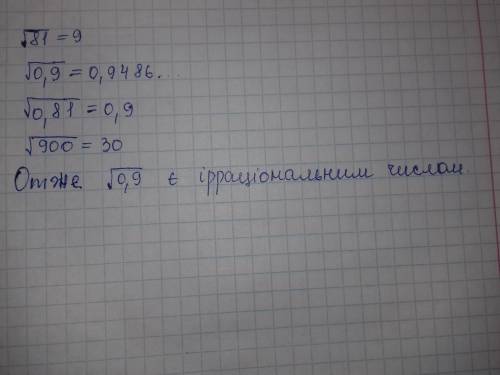 √81 = 9
√0,9 = 0,9486...
√0,81 = 0,9
√900 = 30
Отже √0,9 є ірраціональним числом.